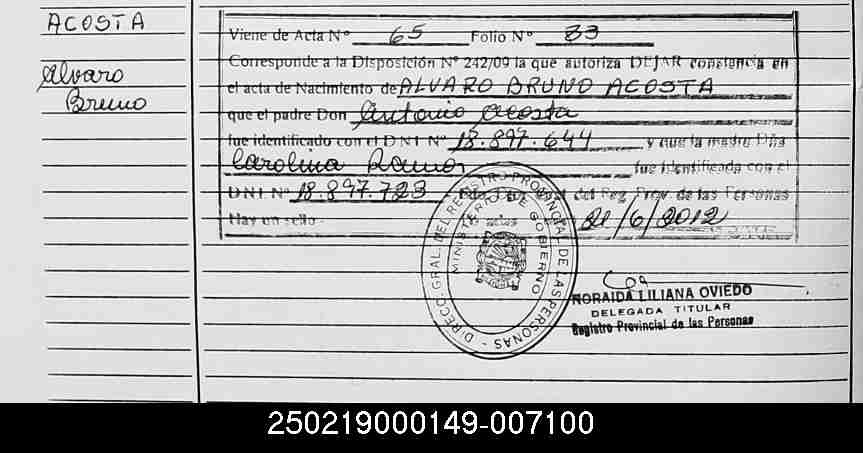 ACOSTA
Alvaro
Bruno
Viene de Acta Nº 65 Folio Nº 33
Corresponde a la Disposición Nº 242/09 la que autoriza DEJAR constancia en
el acta de Nacimiento de ALVARO BRUNO ACOSTA
que el padre Don Antonio Acosta
fue identificado con el DNI Nº 18.897.644 y que la madre Dña
Carolina Ramos fue identificada con el
DNI Nº 18.897.723 del Reg. Prov. de las Personas
Hay un sello 21/6/2012
DIRECC. GRAL. DEL REGISTRO PROVINCIAL DE LAS PERSONAS
MINISTERIO DE GOBIERNO
NORAIDA LILIANA OVIEDO
DELEGADA TITULAR
Registro Provincial de las Personas
250219000149-007100